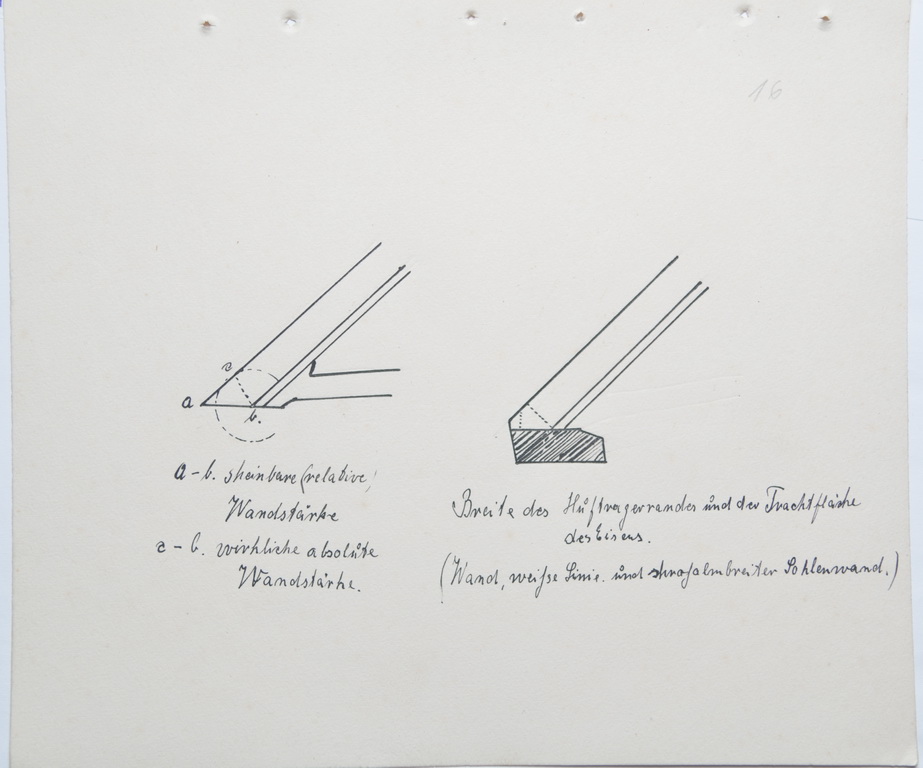 16
c
a
b.
a-b. sheinbare (relative)
Wandstärke
c-b. wirkliche absolute
Wandstärke.
Breite des Huftragerrandes und der Trachtfläche
des Eisens.
(Wand, weiße Linie. und strohalmbreiter Sohlenwand.)